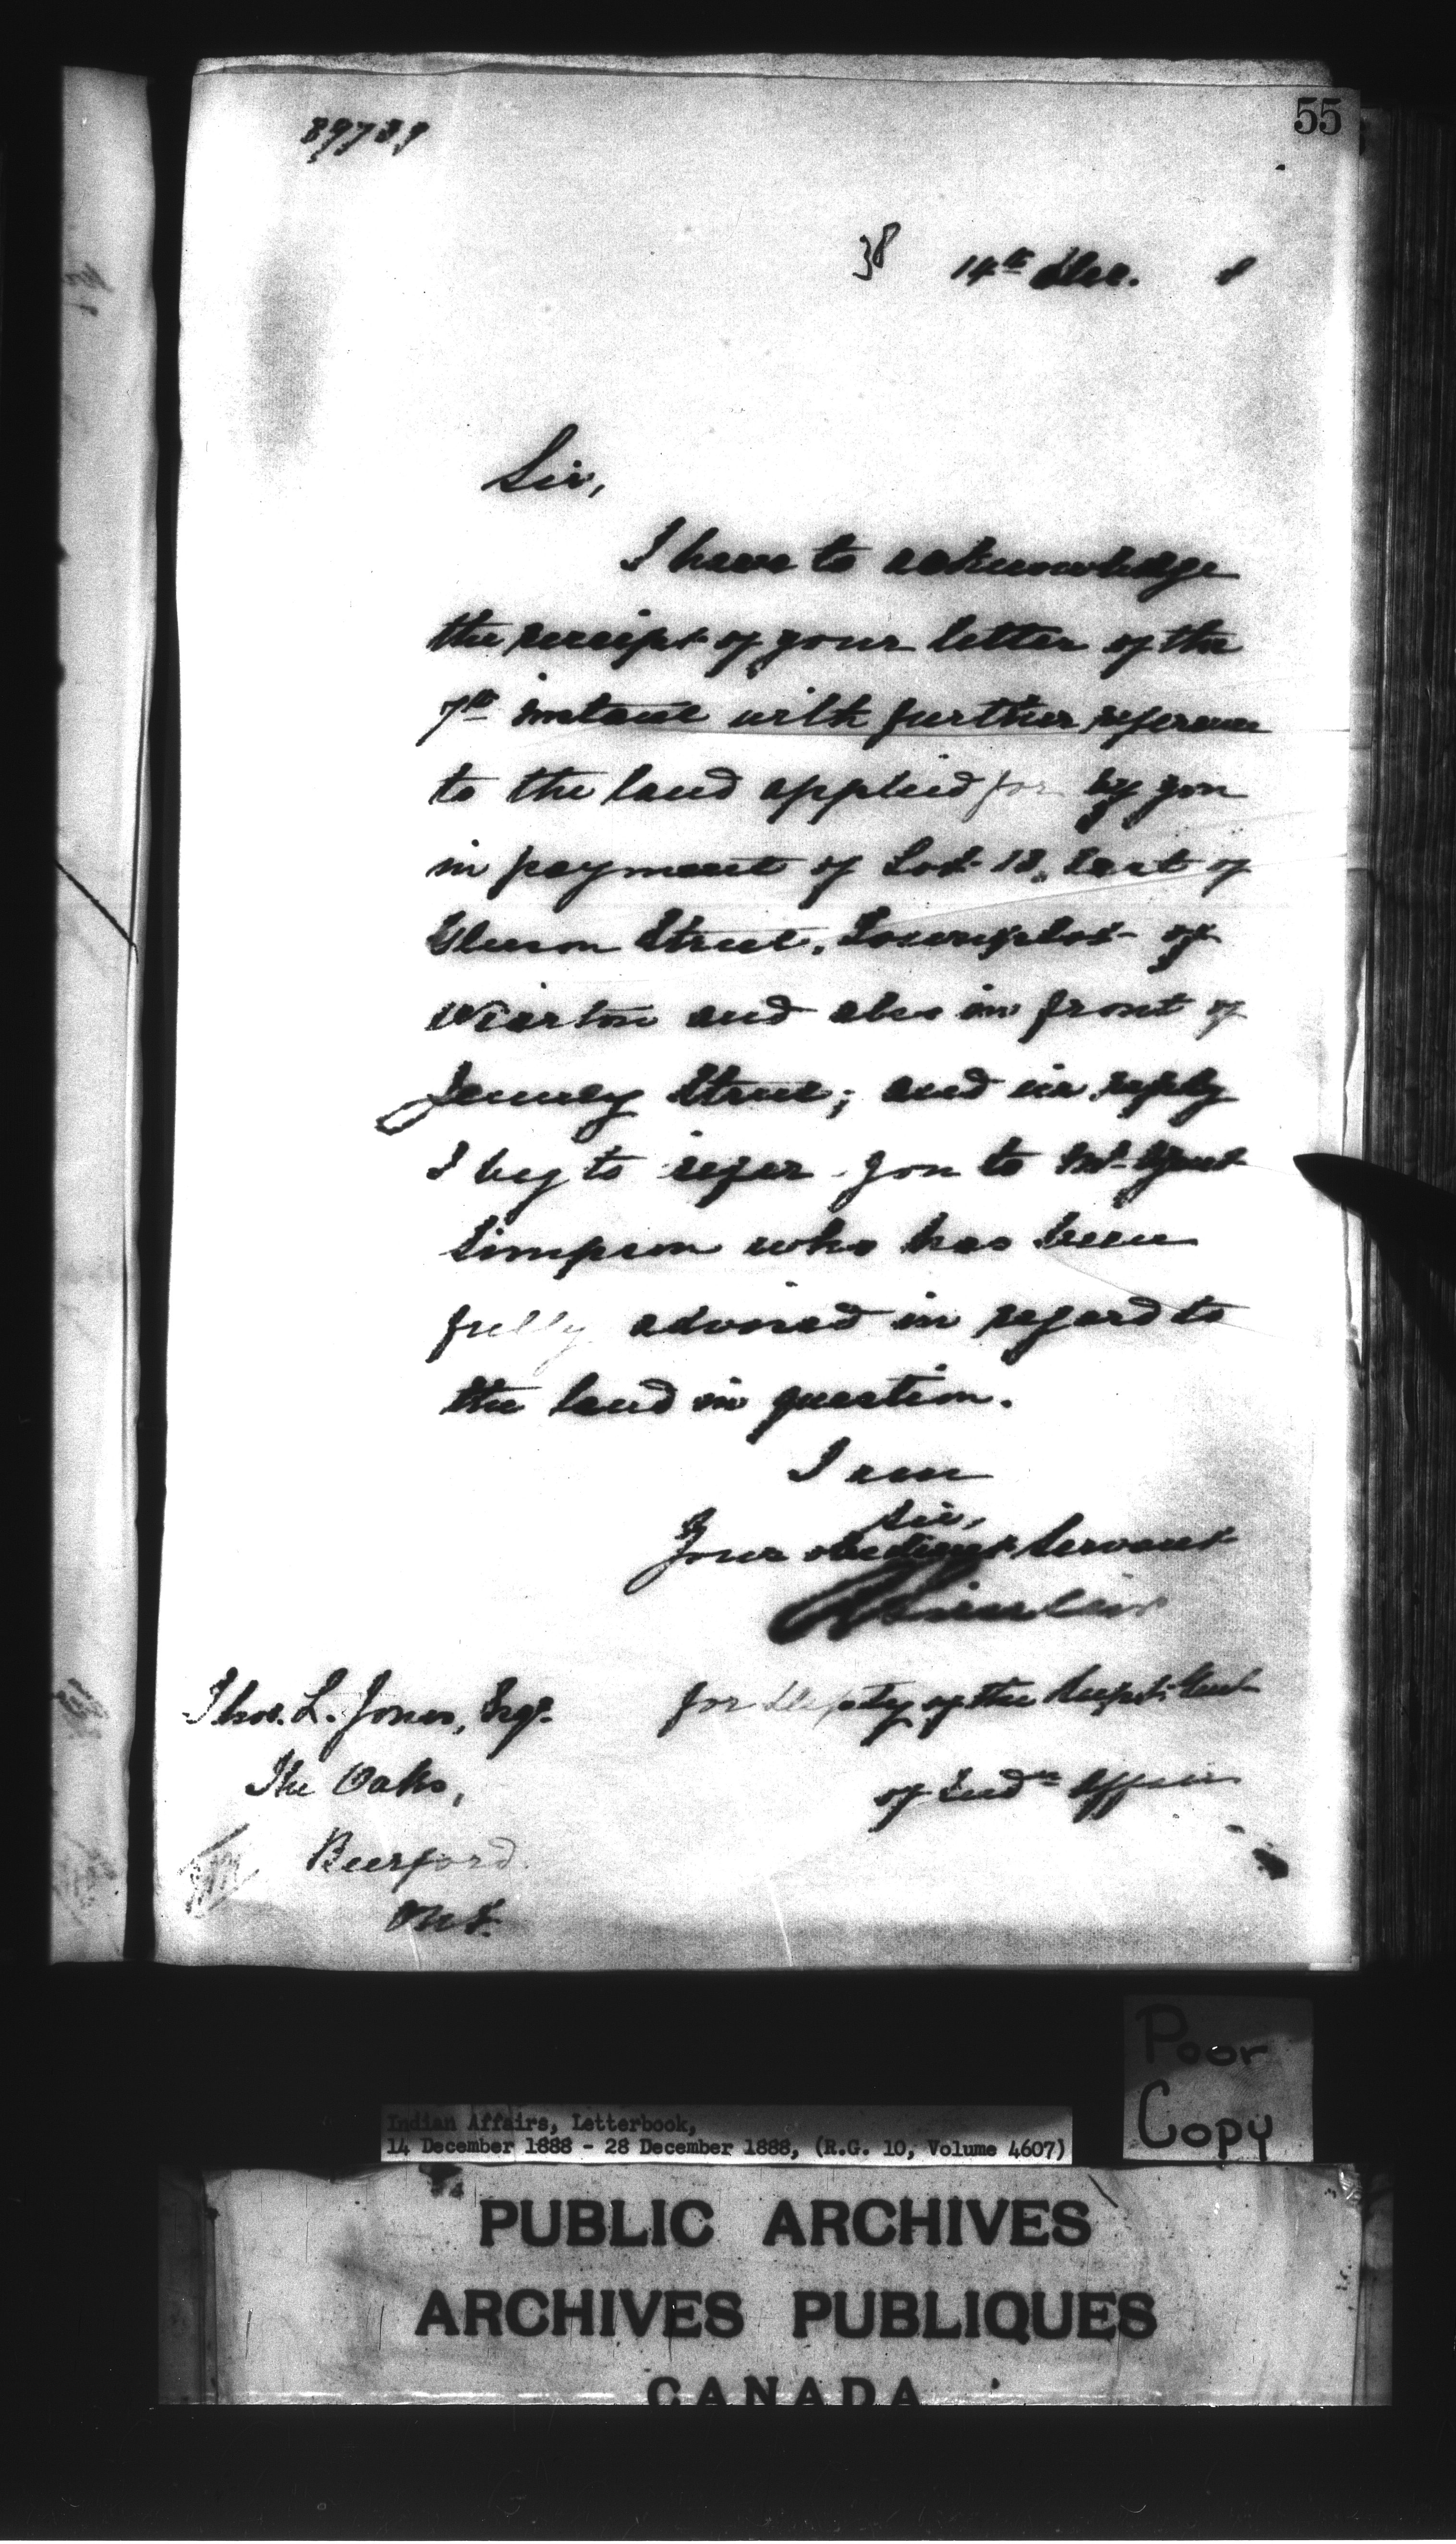 55
89789
38 14th Dec. 8
Sir,
I have to acknowledge
the receipt of your letter of the
7th instant with further reference
to the land applied for by you
in payment of Lot 18, East of
Street, Townplot of
Wiarton and also in front of
Jenney Street; and in reply
I beg to refer you to Mr. Agent
Simpson who has been
fully advised in regard to
the land in question.
I am
Sir,
Your obedient Servant
R Sinclair
for Deputy of the Supt. Genl.
of Indn Affairs
Thos. L. Jones, Esqr.
The Oaks,
Burford
Ont.
Poor
Copy
Indian Affairs, Letterbook,
14 December 1888 - 28 December 1888, (R.G. 10, Volume 4607)
PUBLIC ARCHIVES
ARCHIVES PUBLIQUES
CANADA